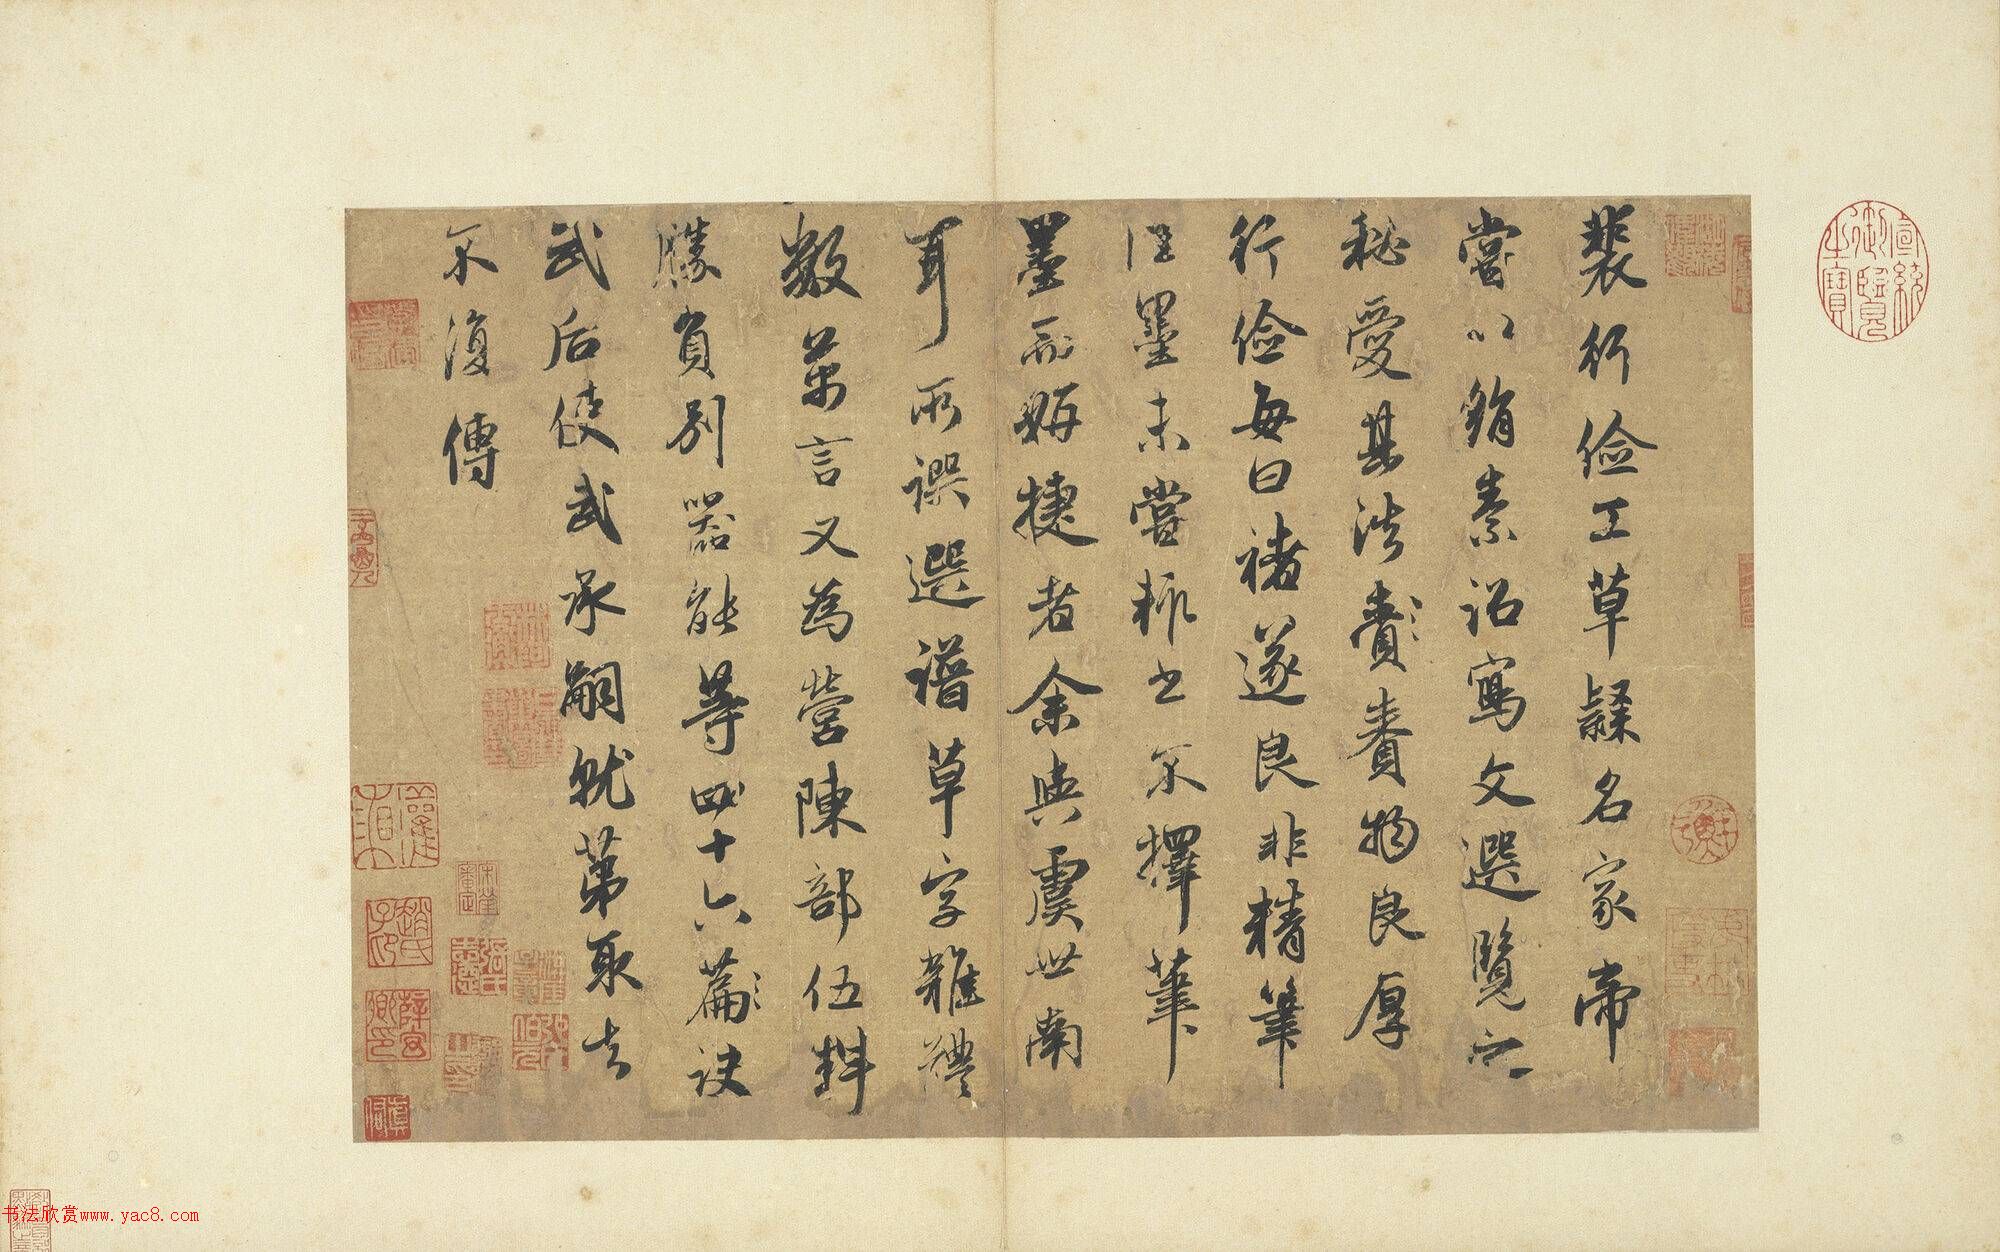 裴行儉工草隸名家帝
嘗以絹素詔寫文選覽之
秘愛其法賚賚物良厚
行儉每曰褚遂良非精筆
佳墨未嘗輒書不擇筆
墨而妍捷者余與虞世南
耳所譔選譜草字雜體
數萬言又為營陳部伍料
勝負別器能等四十六篇訣
武后使武承嗣就第取去
不復傳
宣統御覽之寶
趙氏子印
书法欣赏www.yac8.com